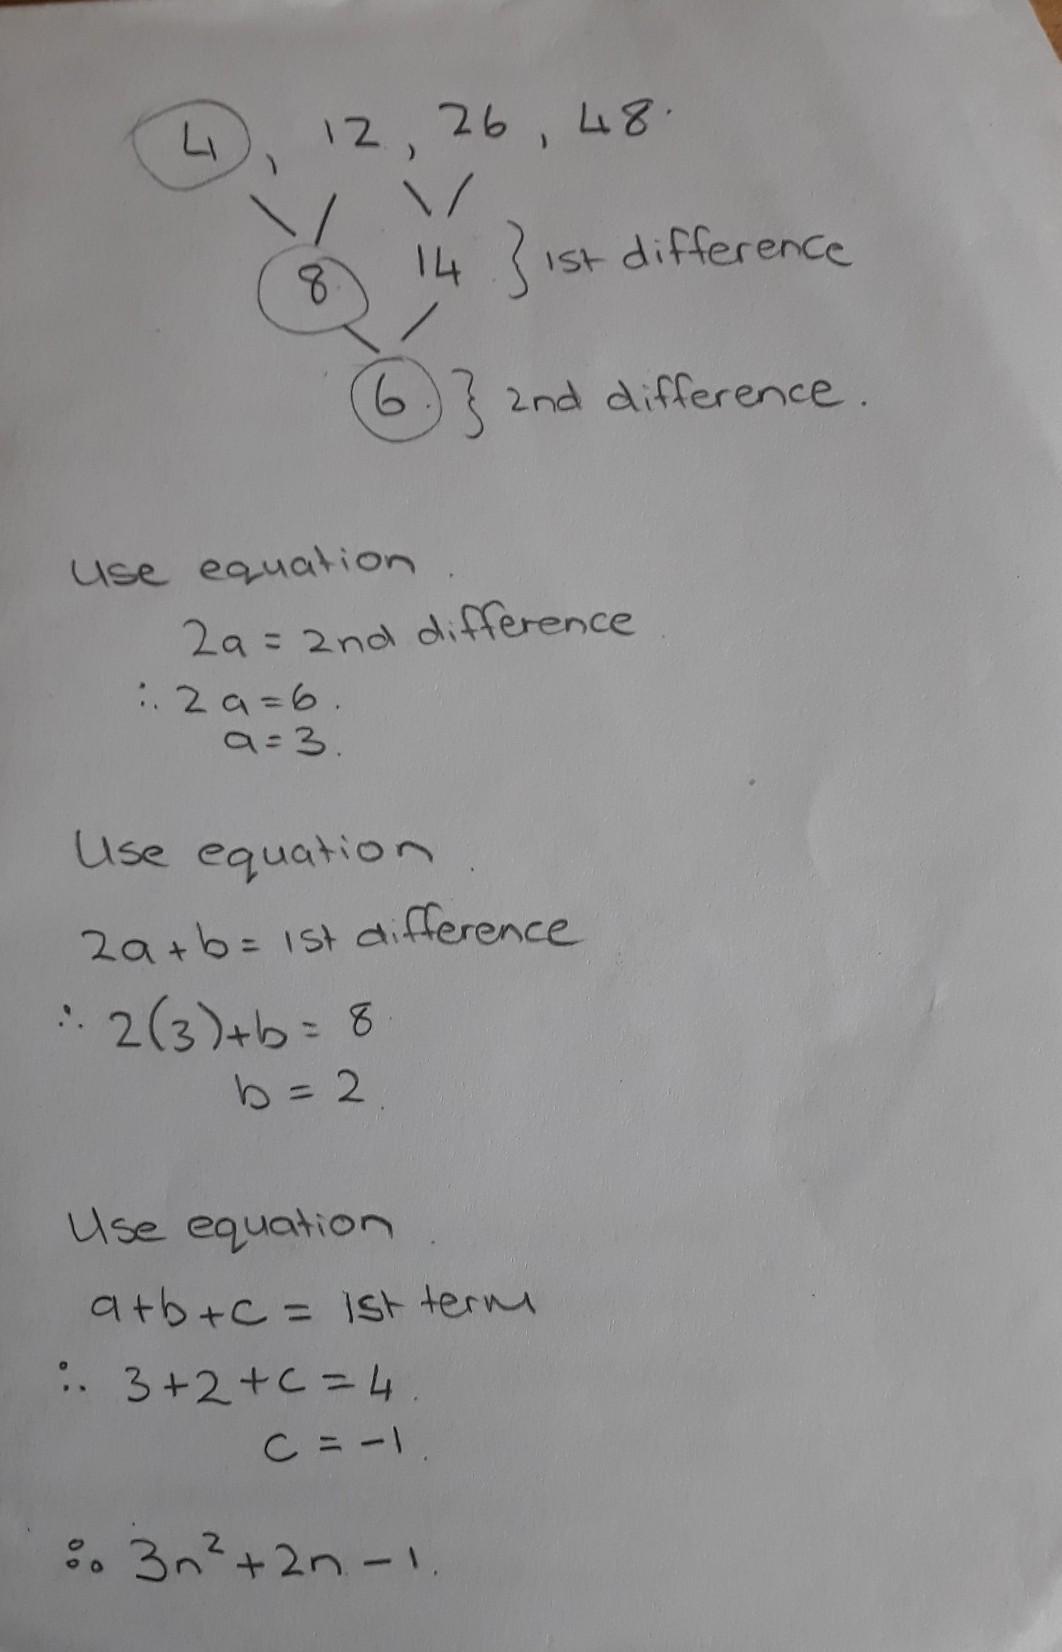 4, 12, 26, 48.
8 14 } 1st difference
6. } 2nd difference.
Use equation.
2a = 2nd difference
∴ 2a=6.
a=3.
Use equation.
2a+b= 1st difference
∴ 2(3)+b= 8
b = 2.
Use equation.
a+b+c = 1st term
∴ 3+2+c=4.
c = -1.
∴ 3n²+2n-1.